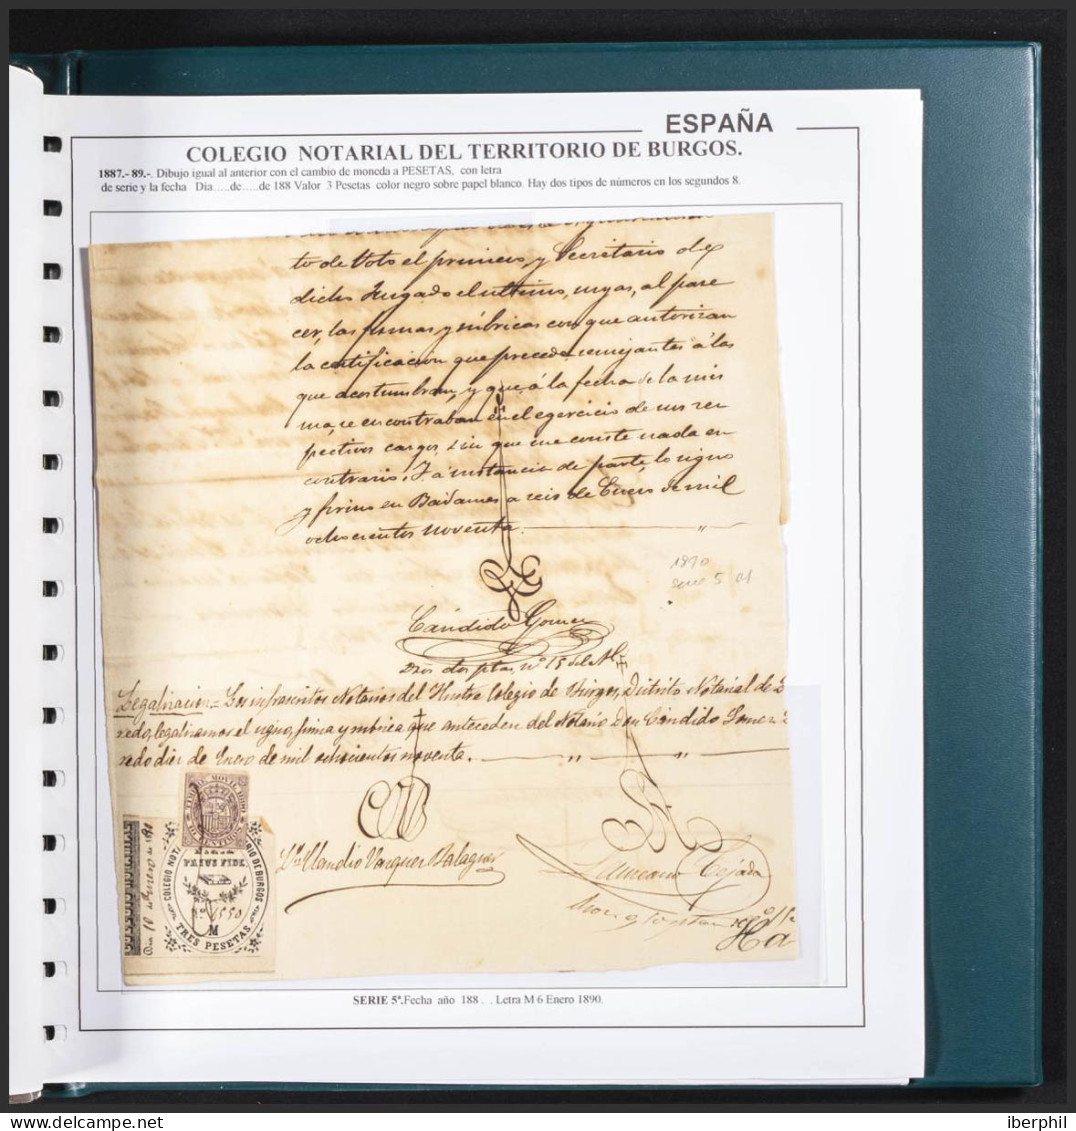 ESPAÑA
COLEGIO NOTARIAL DEL TERRITORIO DE BURGOS.
1887.- 89.-. Dibujo igual al anterior con el cambio de moneda a PESETAS, con letra
de serie y la fecha Día.....de.....de 188 Valor 3 Pesetas color negro sobre papel blanco. Hay dos tipos de números en los segundos 8.
to de Voto el primero, y Secretario de
dicho Juzgado el ultimo, cuyas, al pare
cer, las firmas y rúbricas con que autorizan
la certificacion que precede semejantes á las
que acostumbran, y que á la fecha de la mis
ma, se encontraban en el egercicio de sus res
pectivos cargos, sin que me conste nada en
contrario. Y á instancia de parte, lo signo
y firmo en Badames a seis de Enero de mil
ochocientos noventa.
1890
serie 5
Cándido Gomez
dos ptas. nº 15 del
Legalizacion = Los infrascritos Notarios del Ilustre Colegio de Burgos, Distrito Notarial de
redo, legalizamos el signo, firma y rúbrica que anteceden del Notario Don Cándido Gomez
redo diez de Enero de mil ochocientos noventa.
TIMBRE MOVIL 1890
10 CENTIMOS
PRIUS FIDE
COLEGIO NOT RIO DE BURGOS
5550
M
TRES PESETAS
Día 10 de Enero de 1890
Claudio Vazquez Balagner
Tejada
SERIE 5ª.Fecha año 188 . . Letra M 6 Enero 1890.
iberphil